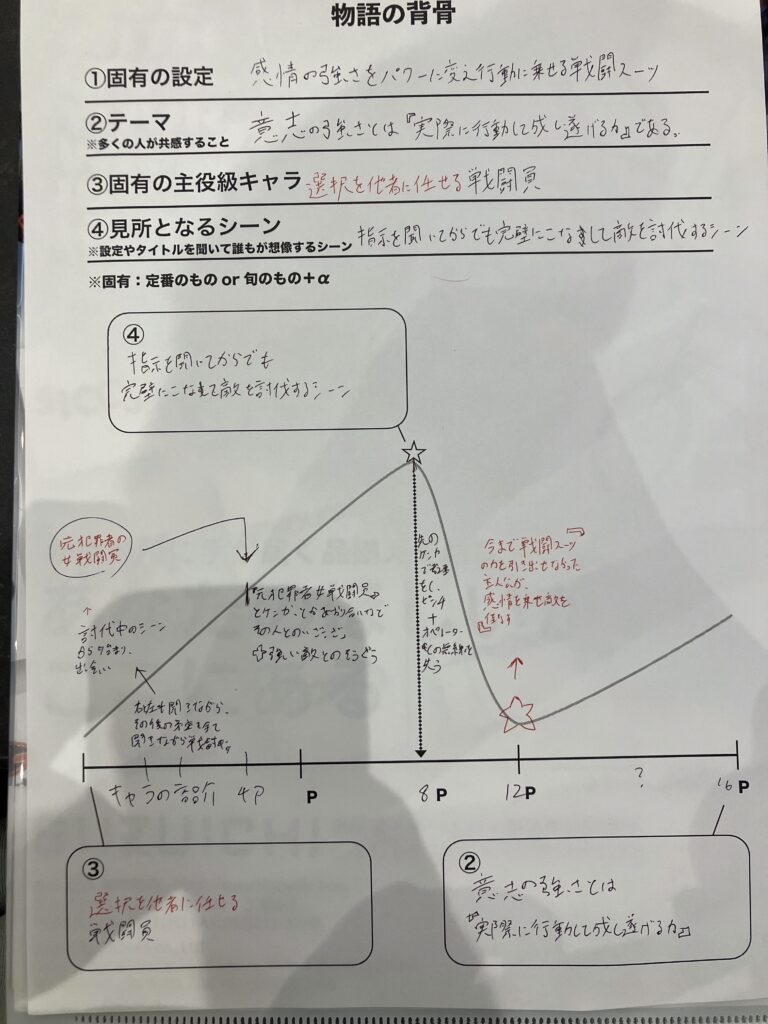 物語の背骨
①固有の設定 感情の強さをパワーに変え行動に乗せる戦闘スーツ
②テーマ 意志の強さとは『実際に行動して成し遂げる力』である。
※多くの人が共感すること
③固有の主役級キャラ 選択を他者に任せる戦闘員
④見所となるシーン 指示を聞いてからでも完璧にこなして敵を討伐するシーン
※設定やタイトルを聞いて誰もが想像するシーン
※固有：定番のもの or 旬のもの＋α
④
指示を聞いてからでも
完璧にこなして敵を討伐するシーン
元犯罪者の
女戦闘員
討伐中のシーン
から始まり、
出会い
『元犯罪者女戦闘員』
とケンカ、とかあり
その人との
強い敵とのそうぐう
先の
ケンカ
で
ピンチ
+
オペレーター
との無線を
失う
今まで戦闘スーツ
の力を引き出せなかった
主人公が、
感情を乗せ敵を
倒す
キャラの紹介 4P P 8P 12P ? 16P
③
選択を他者に任せる
戦闘員
②
意志の強さとは
『実際に行動して成し遂げる力』